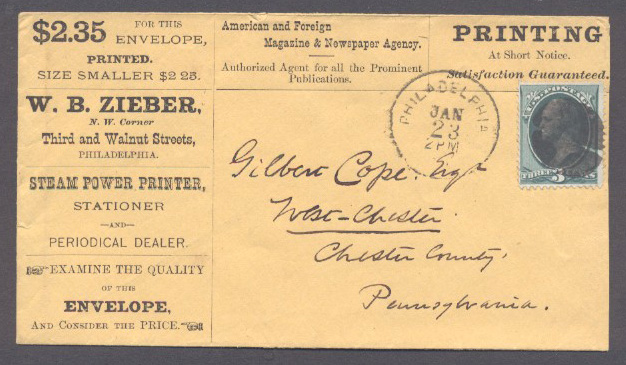 $2.35 FOR THIS
ENVELOPE,
PRINTED.
SIZE SMALLER $2 25.
W. B. ZIEBER,
N. W. Corner
Third and Walnut Streets,
PHILADELPHIA.
STEAM POWER PRINTER,
STATIONER
—AND—
PERIODICAL DEALER.
EXAMINE THE QUALITY
OF THIS
ENVELOPE,
AND CONSIDER THE PRICE.
American and Foreign
Magazine & Newspaper Agency.
Authorized Agent for all the Prominent
Publications.
PRINTING
At Short Notice.
Satisfaction Guaranteed.
PHILADELPHIA
JAN
23
2PM
U.S. POSTAGE
THREE 3 CENTS
Gilbert Cope. Esqr
West-Chester.
Chester County.
Pennsylvania.